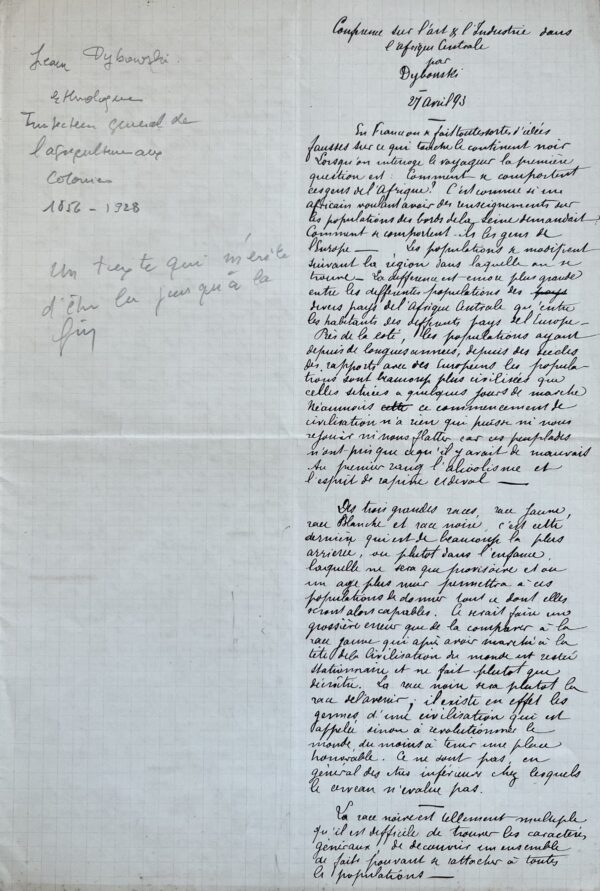 Jean Dybowski
Ethnologue
Inspecteur général de
l'agriculture aux
Colonies
1856 - 1928
Un texte qui mérite
d'être lu jusqu'à la
fin
Conférence sur l'art & l'Industrie dans
l'Afrique Centrale
par
Dybowski
27 Avril 93
En France on se fait toute sortes d'idées
fausses sur ce qui touche le continent noir
Lorsqu'on interroge le voyageur la première
question est : Comment se comportent
ces gens de l'Afrique? C'est comme si un
africain voulant avoir des renseignements sur
les populations des bords de la Seine demandait
Comment se comportent ils les gens de
l'Europe — Les populations se modifient
suivant la région dans laquelle on se
trouve — La différence est encore plus grande
entre les différentes populations des pays
divers pays de l'Afrique Centrale qu'entre
les habitants des différents pays de l'Europe —
Près de la cote, les populations ayant
depuis de longues années, depuis des siecles
des rapports avec des Européens les popula-
tions sont beaucoup plus civilisées que
celles situées a quelques jours de marche
Néanmois cette ce commencement de
civilisation n'a rien qui puisse ni nous
rejouir ni nous flatter car ces peuplades
n'ont pris que ce qu'il y avait de mauvais
Au premier rang l'alcoolisme et
l'esprit de rapine et de vol —
Des trois grandes races, race jaune,
race blanche et race noire, c'est cette
dernière qui est de beaucoup la plus
arrierée, ou plutot dans l'enfance,
laquelle ne sera que provisoire et ou
un age plus mur permettra à ces
populations de donner tout ce dont elles
seront alors capables. Ce serait faire une
grossière erreur que de la comparer à la
race jaune qui après avoir marché à la
tête de la civilisation du monde est restée
stationnaire et ne fait plutot que
décroître. La race noire sera plutot la
race de l'avenir; il existe en effet les
germes d'une civilisation qui est
appelée sinon à révolutionner le
monde, du moins à tenir une place
honorable. Ce ne sont pas en
général des êtres inférieurs chez lesquels
le cerveau n'évolue pas.
La race noire est tellement multiple
qu'il est difficile de trouver les caractères
généraux, de découvrir un ensemble
de faits pouvant se rattacher à toutes
les populations —